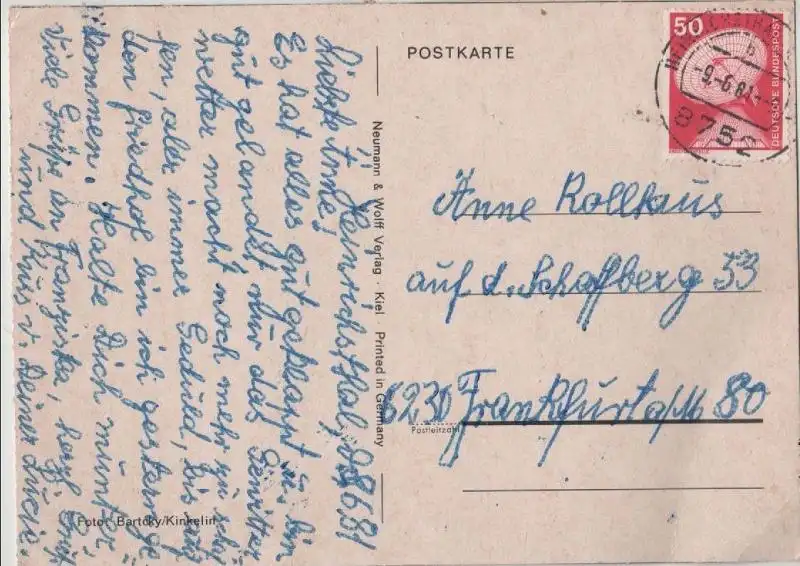 POSTKARTE
50
DEUTSCHE BUNDESPOST
-9.-6.81
8752
Heinrichsthal, d. 8.6.81
Liebste Anne!
Es hat alles gut geklappt u. bin
gut gelandet nur das Gewitter
wetter macht noch mehr zu schaf
fen, aber immer Geduld, bis auf
den Friedhof bin ich gestern ge
kommen. Halte Dich munter,
Viele Grüße an Franziska, herzl. Gruß
und Kuss v. Deiner Lucie.
Neumann & Wolff Verlag · Kiel · Printed in Germany
Anne Rollhaus
auf d. Schafberg 53
6230 Frankfurt a/M 80
Postleitzahl
Foto: Bartcky/Kinkelin